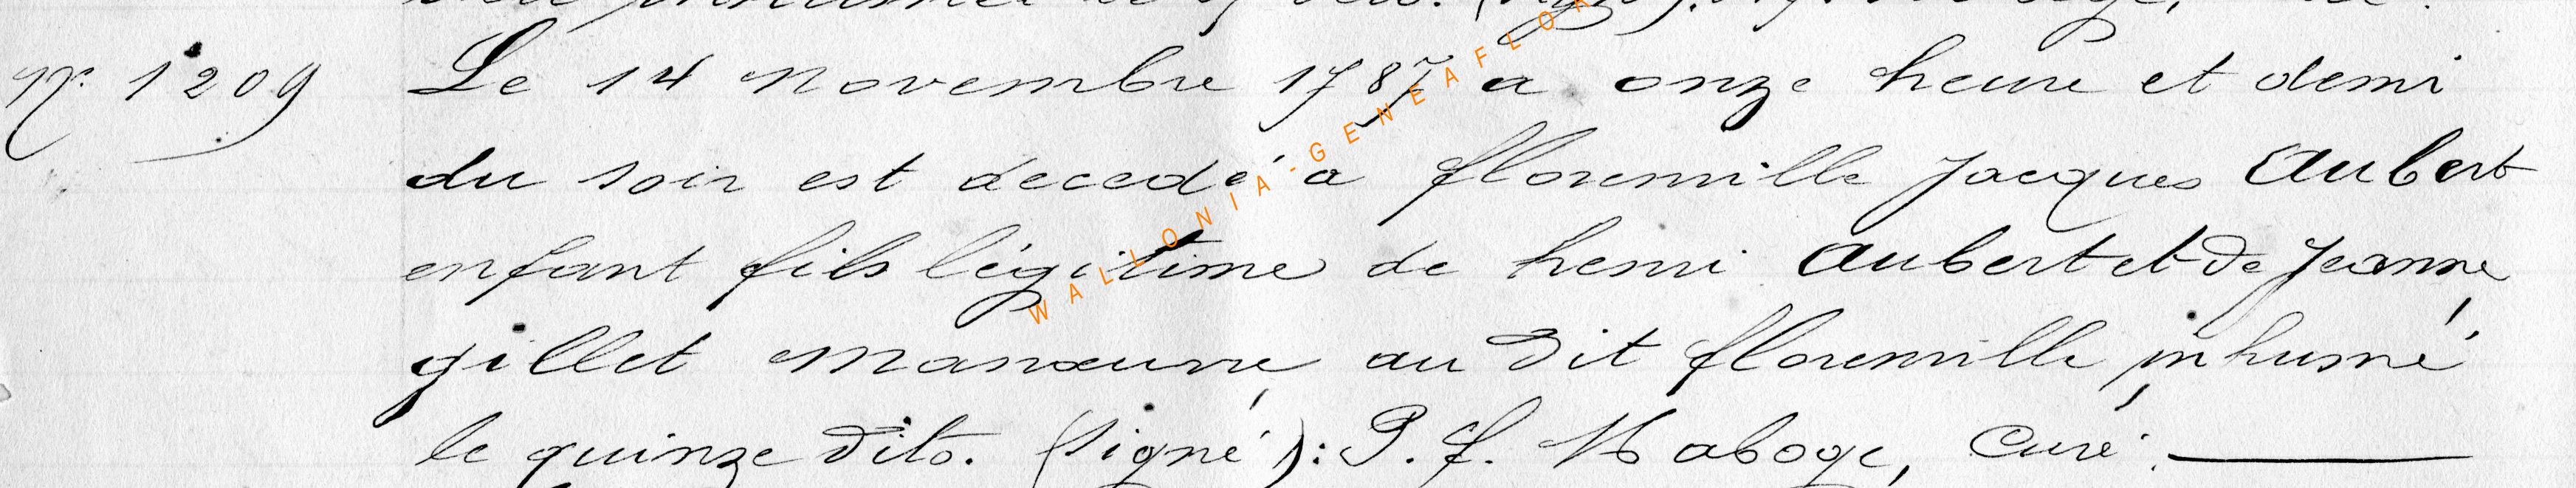 N°. 1209 Le 14 novembre 1787 a onze heure et demi
du soir est decedé a florenville Jacques Aubert
enfant fils légitime de henri Aubert et de Jeanne
gillet manœuvre, au dit florenville, inhumé
le quinze dito. (signé): P. f. Maboge, Curé.
WALLONIA-GENEAFLOR